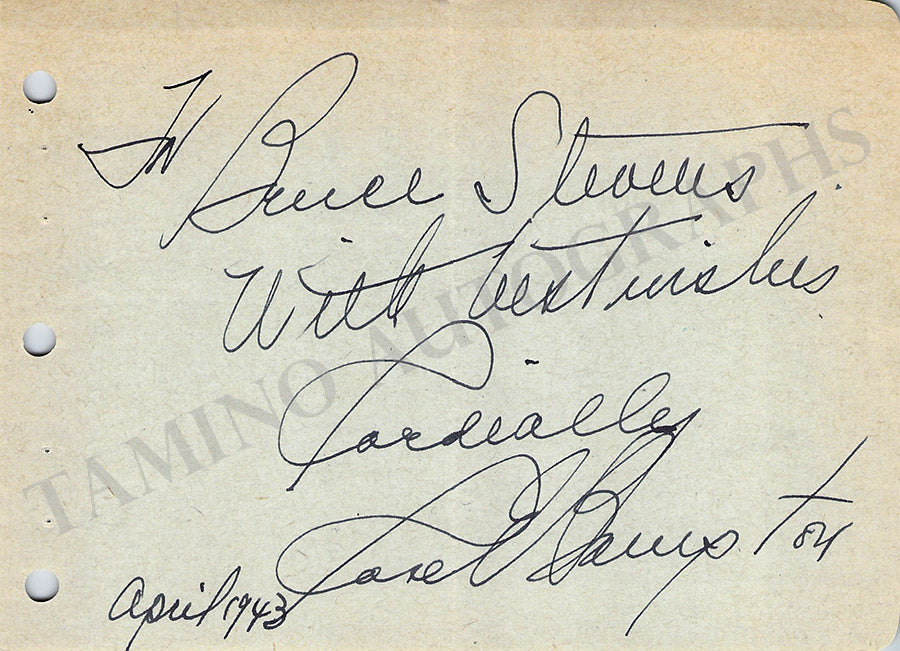 To Bruce Stevens
With best wishes
Cordially
Rose Bampton
April 1943
TAMINO AUTOGRAPHS